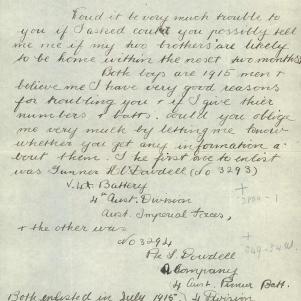 Loud it be very much trouble to
you if I asked could you possibly tell
me me if my two brothers are likely
to be home within the next two months.
Both boys are 1915 men &
believe me I have very good reasons
for troubling you & if I give thier
numbers & batts. would you oblige
me very much by letting me know
whether you get any information a-
bout them. The first one to enlist
was Gunner Dowdell (No 3293)
V.4.A Battery
4th Aust. Division
Aust. Imperial Forces,
& the other was
No 3294
Pte L. Dowdell
A Company
4 Aust. Pioneer Batt.
Both enlisted in July 1915. 4 Division